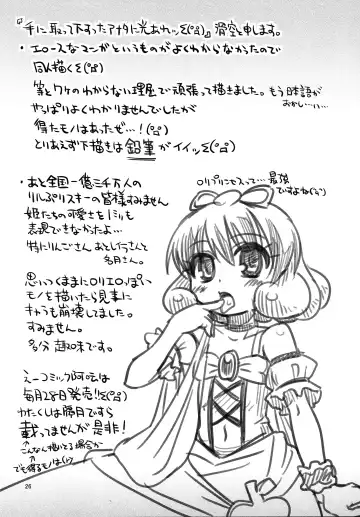 『手に取って下すったアナタに光あれッΣ(°д°)』滑空と申します。
・エロースなマンガというものがよくわからなかったので
同人描くΣ(°д°)
等とワケのわからない理屈で頑張って描きました。もう日本語が
おかしい…
やっぱりよくわかりませんでしたが
得たモノはあったぜ…！(°д°)
とりあえず下描きは鉛筆がイイッΣ(°д°)
・あと全国一億三千万人の
りるぷりスキーの皆様すみません
姫たちの可愛さを1ミリも
表現できなかったよ…
特にりんごさん あとレイラさんと
名月さん。
思いつくままにロリエロっぽい
モノを描いたら見事に
キャラも崩壊してました。
すみません。
多分 趣味です。
えーコミック阿吽は
毎月28日発売！！Σ(°д°)
わたくしは勝月ですら
載ってませんが是非！
こんなん描いてる場合か
でも得るモノは
ロリプリンセスって…最強
ですよね
26